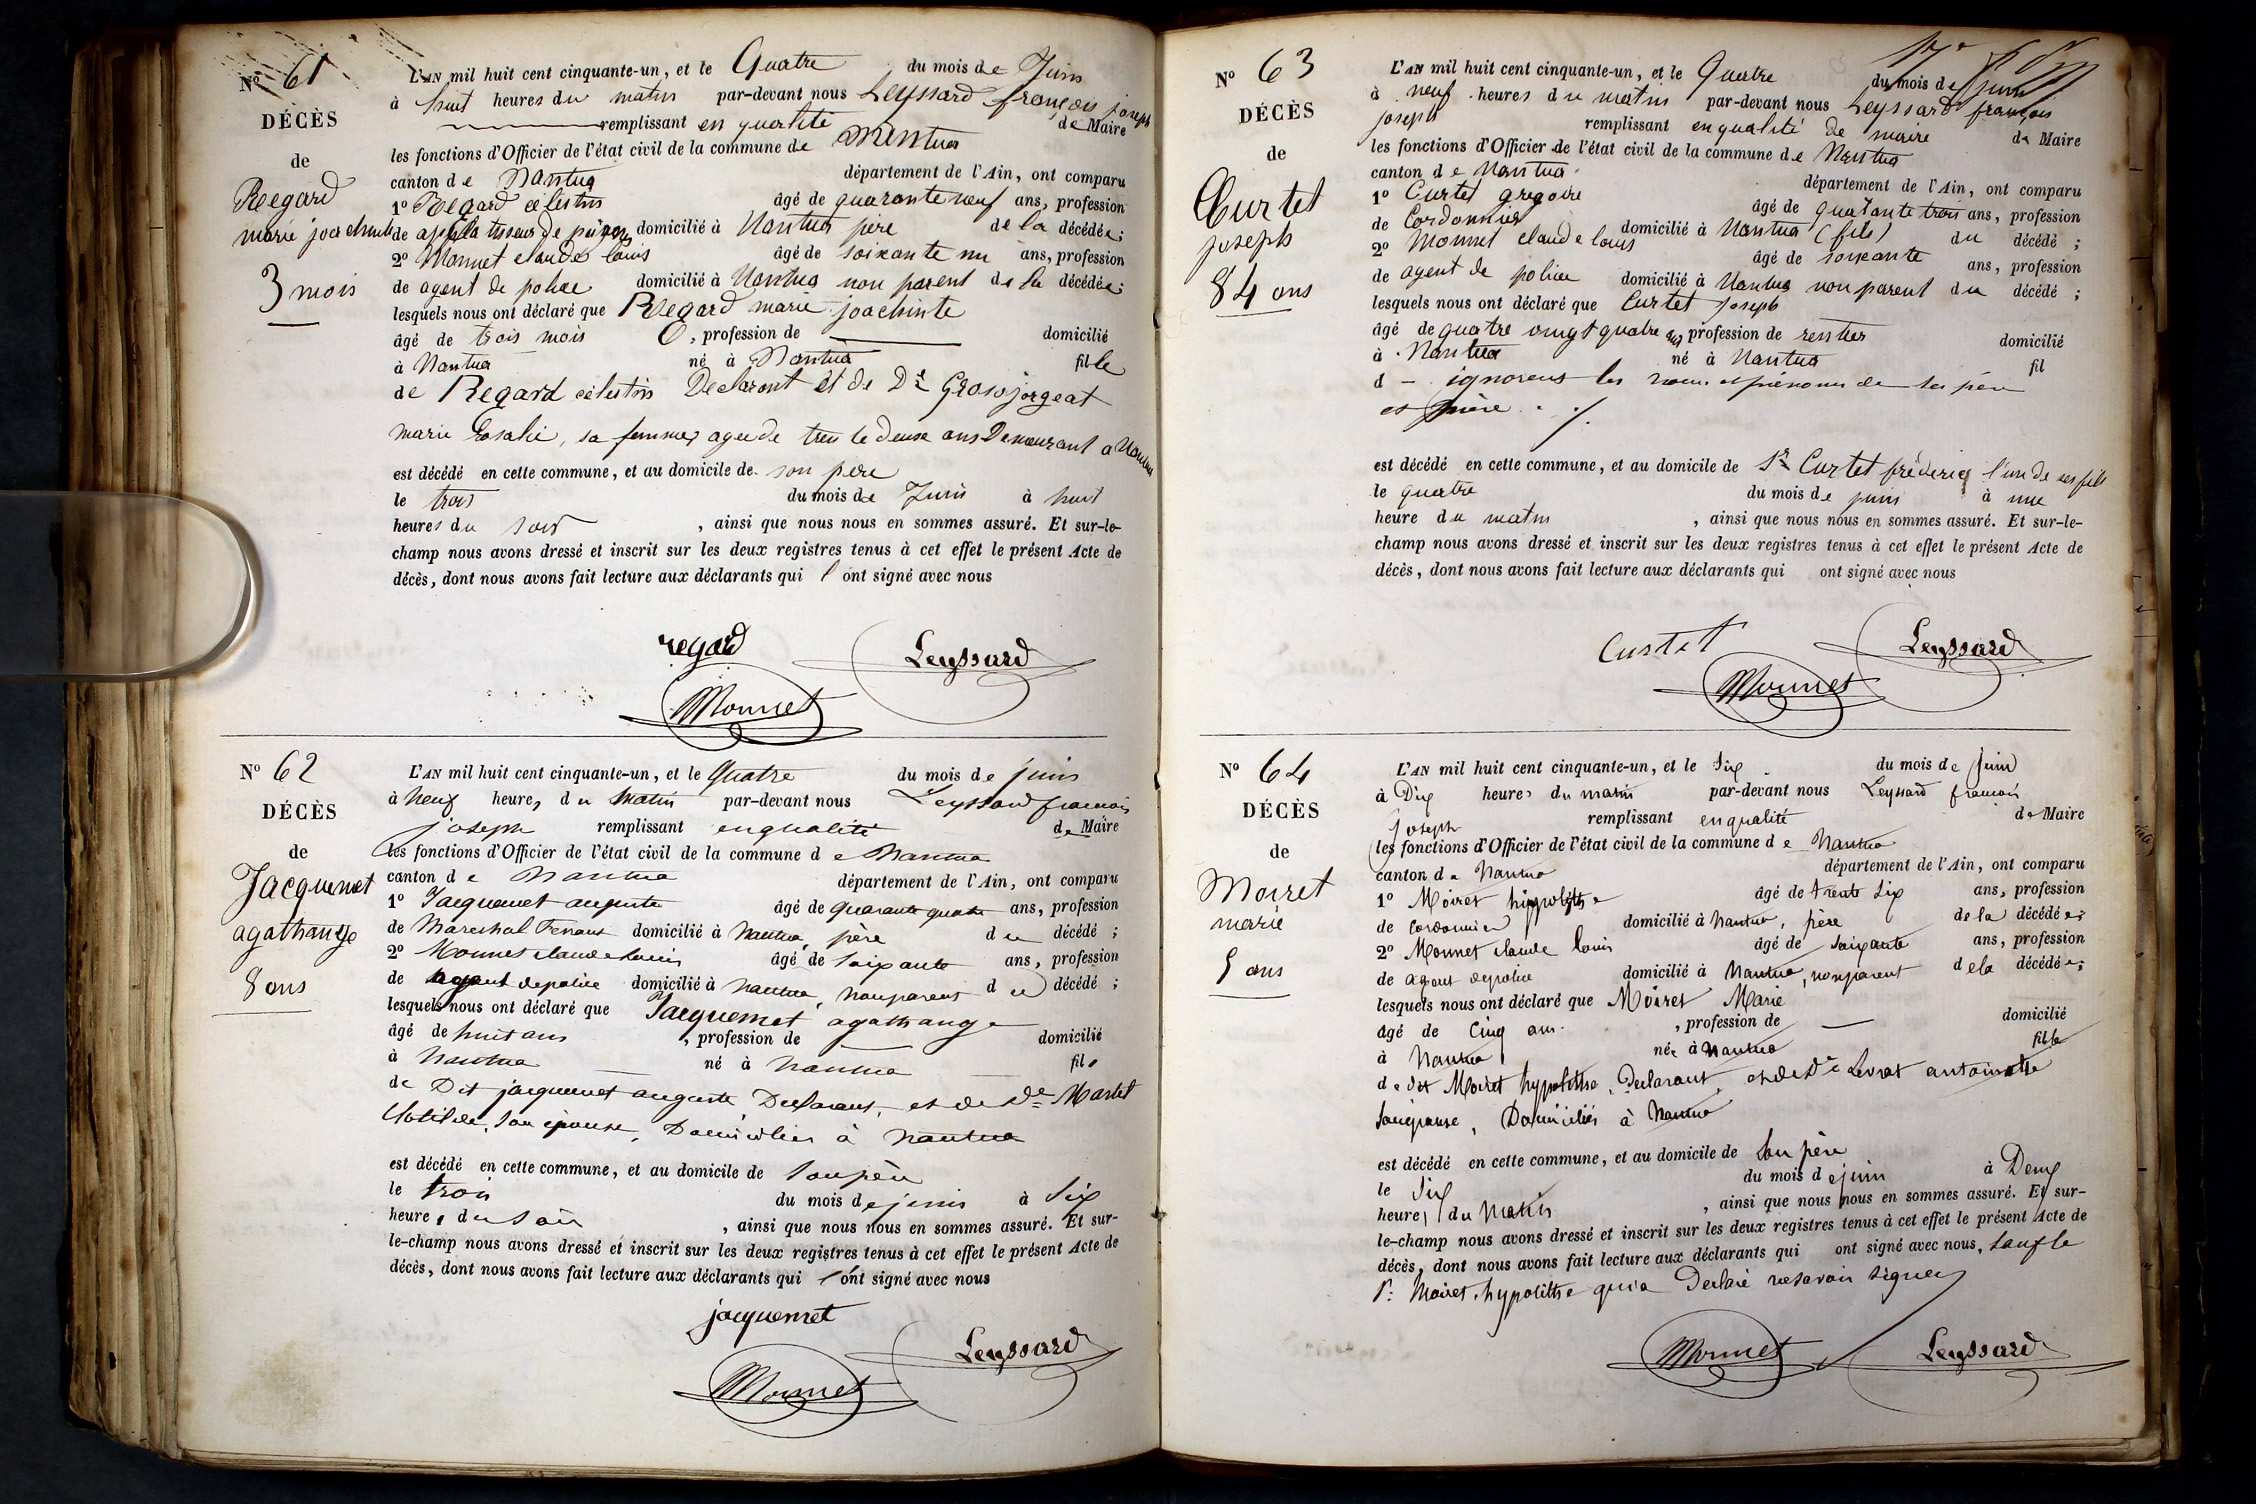 Nº 61
DÉCÈS
de
Regard
marie joachinte
3 mois
L'AN mil huit cent cinquante-un, et le Quatre du mois de Juin
à huit heures du matin par-devant nous Leyssard françois joseph
remplissant en qualité de Maire
les fonctions d'Officier de l'état civil de la commune de Nantua
canton de Nantua département de l'Ain, ont comparu
1º Regard celestin âgé de quarante neuf ans, profession
de domicilié à Nantua père de la décédée;
2º Monnet claude louis âgé de soixante un ans, profession
de agent de police domicilié à Nantua non parent de la décédée;
lesquels nous ont déclaré que Regard marie joachinte
âgé de trois mois , profession de domicilié
à Nantua né à Nantua fille
de Regard celestin Declarant et de De Grosjorgeat
marie Rosalie, sa femme, agee de trente deuxe ans Demeurant a Nantua
est décédé en cette commune, et au domicile de son pere
le trois du mois de Juin à huit
heures du soir , ainsi que nous nous en sommes assuré. Et sur-le-
champ nous avons dressé et inscrit sur les deux registres tenus à cet effet le présent Acte de
décès, dont nous avons fait lecture aux déclarants qui l'ont signé avec nous
regard
Leyssard
Monnet
Nº 62
DÉCÈS
de
Jacquemet
agathange
8 ans
L'AN mil huit cent cinquante-un, et le Quatre du mois de juin
à neuf heures du matin par-devant nous Leyssard francois
joseph remplissant en qualité de Maire
les fonctions d'Officier de l'état civil de la commune de Nantua
canton de Nantua département de l'Ain, ont comparu
1º Jacquemet auguste âgé de quarante quatre ans, profession
de Marechal Ferrant domicilié à Nantua, père du décédé;
2º Monnet claude Louis âgé de soixante ans, profession
de agent de police domicilié à Nantua, non parent du décédé;
lesquels nous ont déclaré que Jacquemet agathange
âgé de huit ans , profession de domicilié
à Nantua né à Nantua fils
de Dit jacquemet auguste, Declarant, et de De Martel
Clotilde, son épouse, Domiciliés à Nantua
est décédé en cette commune, et au domicile de son père
le trois du mois de juin à Six
heures du soir , ainsi que nous nous en sommes assuré. Et sur-
le-champ nous avons dressé et inscrit sur les deux registres tenus à cet effet le présent Acte de
décès, dont nous avons fait lecture aux déclarants qui l'ont signé avec nous
jacquemet
Leyssard
Monnet
Nº 63
DÉCÈS
de
Curtet
joseph
84 ans
L'AN mil huit cent cinquante-un, et le Quatre du mois de juin
à neuf heures du matin par-devant nous Leyssard françois
joseph remplissant en qualité de maire de Maire
les fonctions d'Officier de l'état civil de la commune de Nantua
canton de Nantua département de l'Ain, ont comparu
1º Curtet gregoire âgé de quarante trois ans, profession
de Cordonnier domicilié à Nantua (fils) du décédé;
2º Monnet claude louis âgé de soixante ans, profession
de agent de police domicilié à Nantua non parent du décédé;
lesquels nous ont déclaré que Curtet joseph
âgé de quatre vingt quatre ans profession de rentier domicilié
à Nantua né à Nantua fil
d - ignorons les noms et prénoms de ses père
et mère
est décédé en cette commune, et au domicile de Sr Curtet fréderic l'un de ses fils
le quatre du mois de juin à une
heure du matin , ainsi que nous nous en sommes assuré. Et sur-le-
champ nous avons dressé et inscrit sur les deux registres tenus à cet effet le présent Acte de
décès, dont nous avons fait lecture aux déclarants qui ont signé avec nous
Curtet
Leyssard
Monnet
Nº 64
DÉCÈS
de
Moiret
marie
5 ans
L'AN mil huit cent cinquante-un, et le Six du mois de juin
à Dix heures du matin par-devant nous Leyssard francois
joseph remplissant en qualité de Maire
les fonctions d'Officier de l'état civil de la commune de Nantua
canton de Nantua département de l'Ain, ont comparu
1º Moiret hippolithe âgé de trente six ans, profession
de cordonnier domicilié à Nantua, père de la décédée;
2º Monnet claude louis âgé de soixante ans, profession
de agent de police domicilié à Nantua, non parent de la décédée;
lesquels nous ont déclaré que Moiret Marie
âgé de Cinq ans , profession de domicilié
à Nantua née à Nantua fille
de dit Moiret hypolithe, Declarant, et de De Levrat antoinette
son épouse, Domiciliés à Nantua
est décédé en cette commune, et au domicile de son père
le Six du mois de juin à Deux
heures du Matin , ainsi que nous nous en sommes assuré. Et sur-
le-champ nous avons dressé et inscrit sur les deux registres tenus à cet effet le présent Acte de
décès, dont nous avons fait lecture aux déclarants qui ont signé avec nous, sauf le
Sr Moiret hypolithe qui a Declaré ne savoir signer
Monnet
Leyssard